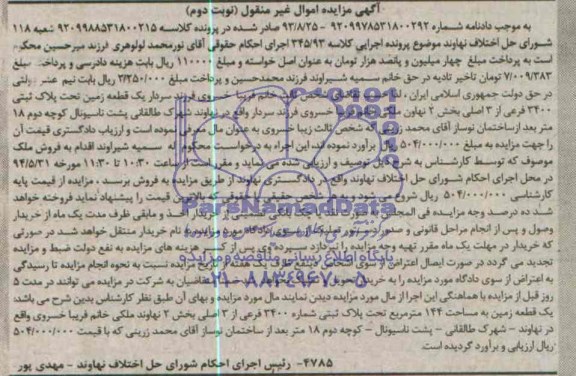 آگهی مزایده اموال غیر منقول (نوبت دوم)
به موجب دادنامه شماره ۹۲۰۹۹۷۸۵۳۱۸۰۰۲۹۲ - ۹۳/۸/۲۵ صادر شده در پرونده کلاسه ۹۲۰۹۹۸۸۵۳۱۸۰۰۲۱۵ شعبه ۱۱۸
شورای حل اختلاف نهاوند موضوع پرونده اجرایی کلاسه ۳۴۵/۹۳ اجرای احکام حقوقی آقای نورمحمد لولوهری فرزند میرحسین محکوم
است به پرداخت مبلغ چهار میلیون و پانصد هزار تومان به عنوان اصل خواسته و مبلغ ۱۱۰۰۰۰ ریال بابت هزینه دادرسی و پرداخت مبلغ
۷/۰۰۹/۳۸۳ تومان تاخیر تادیه در حق خانم سمیه شیراوند فرزند محمدحسین و پرداخت مبلغ ۲/۲۵۰/۰۰۰ ریال بابت نیم عشر دولتی
در حق دولت جمهوری اسلامی ایران، شخص ثالث خانم فریبا خسروی فرزند سردار یک قطعه زمین تحت پلاک ثبتی
۳۴۰۰ فرعی از ۳ اصلی بخش ۲ نهاون خسروی فرزند سردار واقع در نهاوند شهرک طالقانی پشت ناسیونال کوچه دوم ۱۸
متر بعد ازساختمان نوساز آقای محمد زرینی که شخص ثالث زیبا خسروی به عنوان مال معرفی نموده است و ارزیاب دادگستری قیمت آن
را جهت مزایده به مبلغ ۵۰۴/۰۰۰/۰۰۰ ریال برآورد نموده اند، این اجراء به درخواست محکوم له سمیه شیراوند اقدام به فروش ملک
موصوف که توسط کارشناس به شرح ذیل توصیف و ارزیابی شده می نماید و مقرر است از ساعت ۱۰:۳۰ تا ۱۱:۳۰ مورخه ۹۴/۵/۳۱
در محل اجرای احکام شورای حل اختلاف نهاوند واقع در دادگستری نهاوند از طریق مزایده به فروش برسد، مزایده از قیمت پایه
کارشناسی ۵۰۴/۰۰۰/۰۰۰ ریال شروع می شود و به شخص حقیقی یا حقوقی که بالاترین قیمت را پیشنهاد نماید فروخته خواهد
شد ده درصد وجه مزایده فی المجلس اخذ و مابقی ظرف مدت یک ماه از خریدار
وصول و پس از انجام مراحل قانونی و صدور دستور تملیک از سوی دادگاه مورد مزایده به نام خریدار منتقل خواهد شد، در صورتی
که خریدار در مهلت یک ماه مقرر بقیه وجه مزایده را نپردازد سپرده وی پس از کسر هزینه های مزایده به نفع دولت ضبط و مزایده
تجدید می گردد در صورت ایصال اعتراض از سوی ظرف یک هفته از تاریخ مزایده نسبت به نحوه انجام مزایده تا رسیدگی
به اعتراض از سوی دادگاه مورد مزایده را به خریدار تحویل متقاضیان به شرکت در مزایده می توانند در مدت ۵
روز قبل از مزایده با هماهنگی این اجرا از مال مورد مزایده دیدن نمایند مال مورد مزایده و بهای آن طبق نظر کارشناس بدین شرح می باشد:
یک قطعه زمین به مساحت ۱۴۴ مترمربع تحت پلاک ثبتی شماره ۳۴۰۰ فرعی از ۳ اصلی بخش ۲ نهاوند ملکی خانم فریبا خسروی واقع
در نهاوند - شهرک طالقانی - پشت ناسیونال - کوچه دوم ۱۸ متر بعد از ساختمان نوساز آقای محمد زرینی که با قیمت ۵۰۴/۰۰۰/۰۰۰
ریال ارزیابی و برآورد گردیده است.
۴۷۸۵- رئیس اجرای احکام شورای حل اختلاف نهاوند - مهدی پور
ParsNamadData
پایگاه اطلاع رسانی مناقصه و مزایده
۰۲۱-۸۸۳۴۹۶۷۰-۵